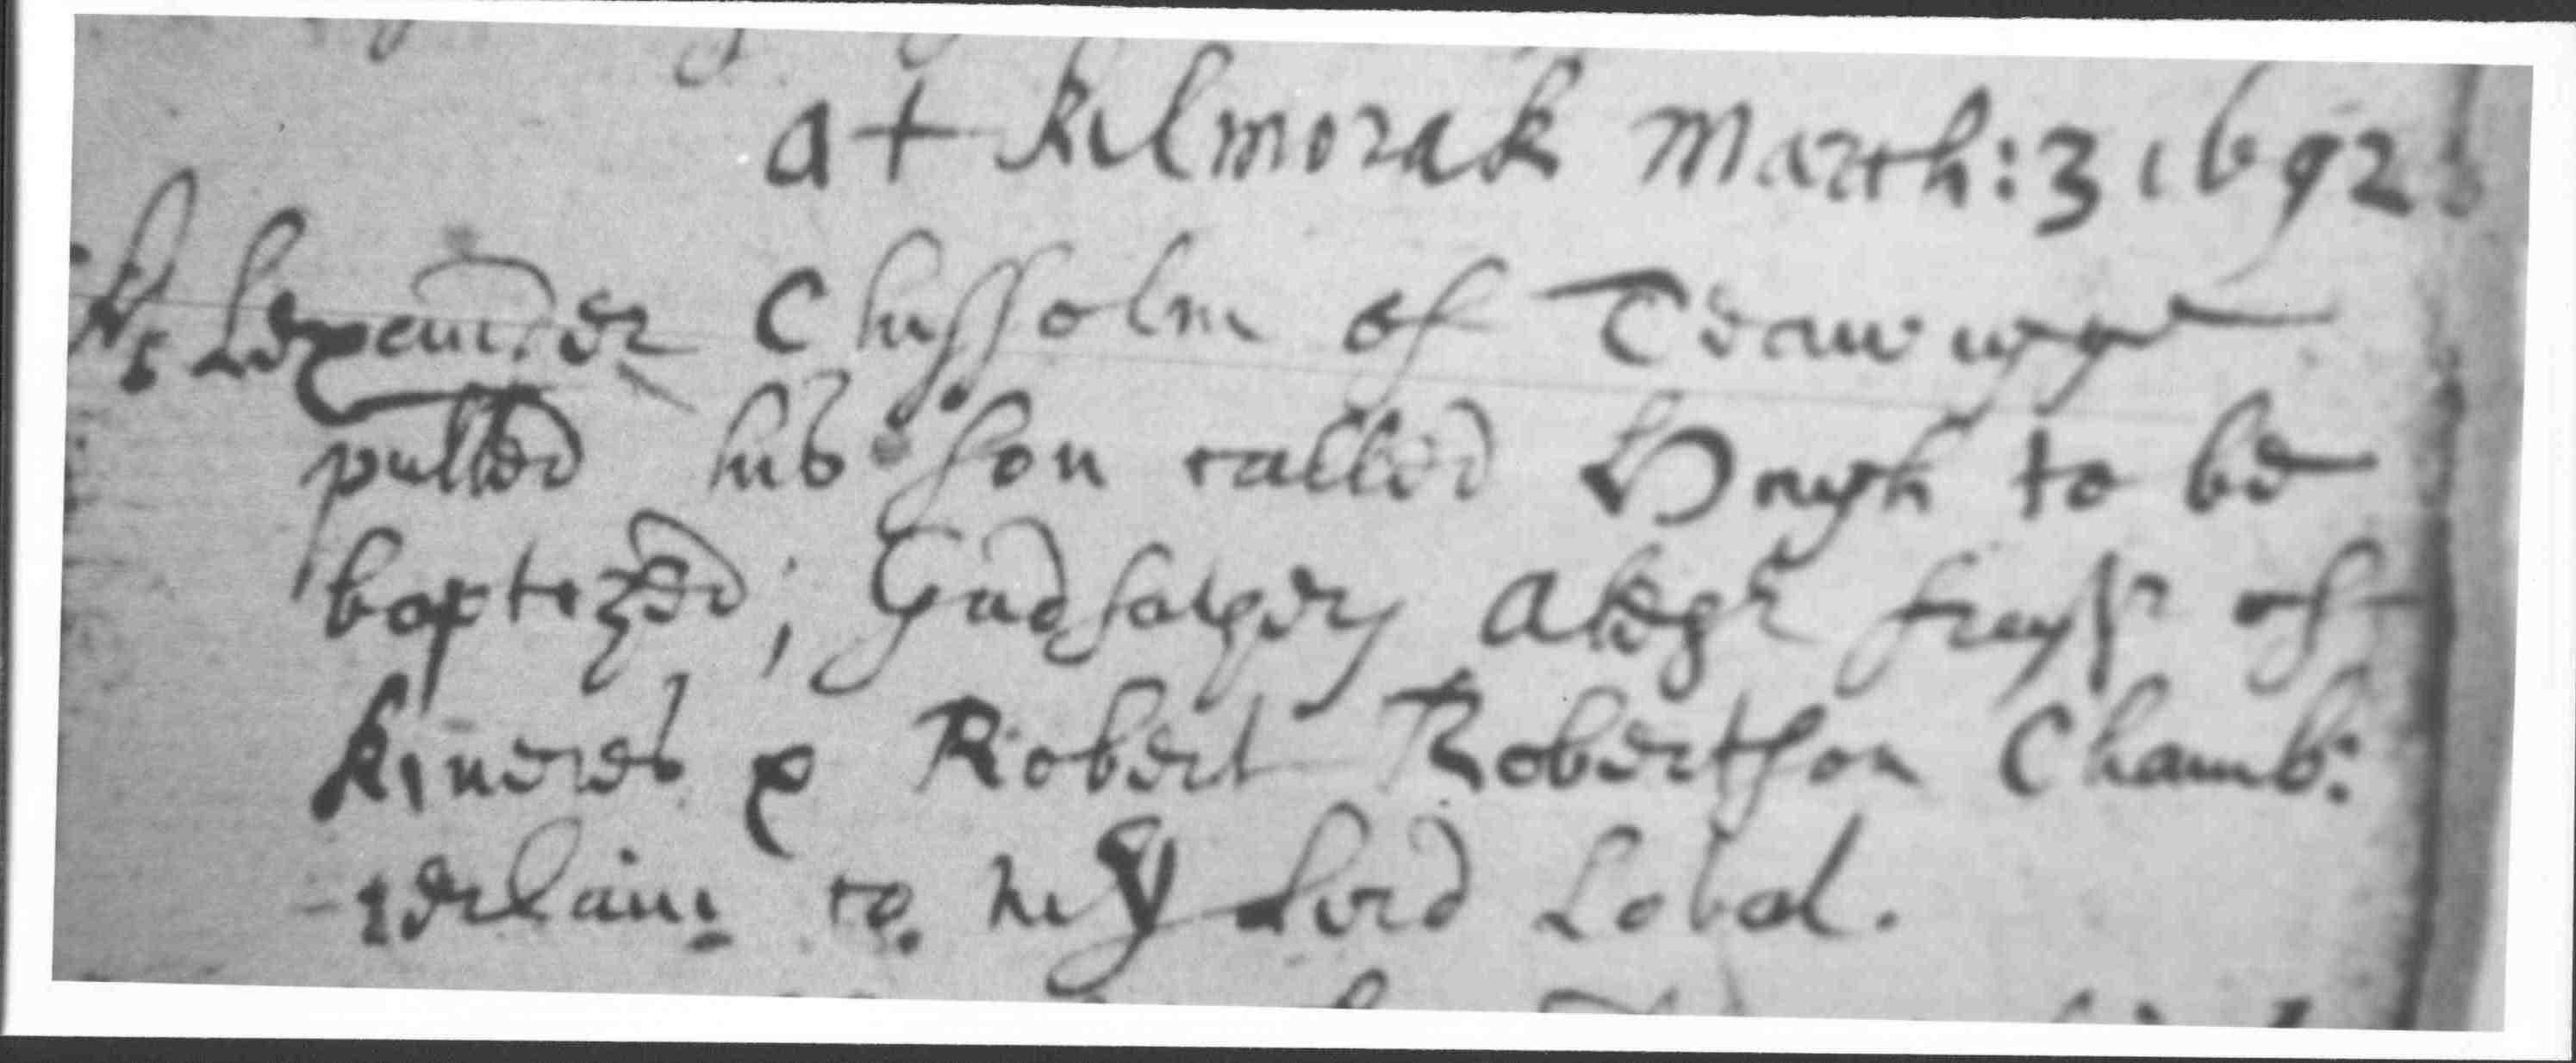 at Kilmorak March: 3 1692
Alexander Chissolm of
pulled his son called Hugh to be
baptized; Godfathers Alexr frasr of
Kineres & Robert Robertson Chamb:
-erlain: to. my Lord Lovat.